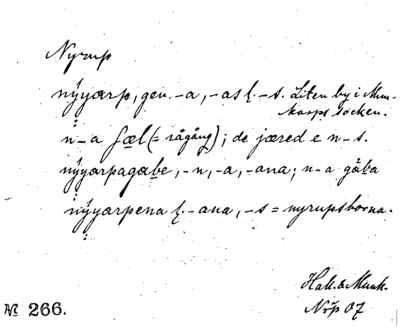 Nyrup
nýyarp, gen. -a, -as l. -s. Liten by i Mun-
karps socken.
n-a fæl (= rågång); de jæred e n-s.
nýyarpagabe, -n, -a, -ana; n-a gåta
nýyarpena l. -ana, -s = nyrupsborna.
Hall. & Munk.
Nrp 07
№ 266.